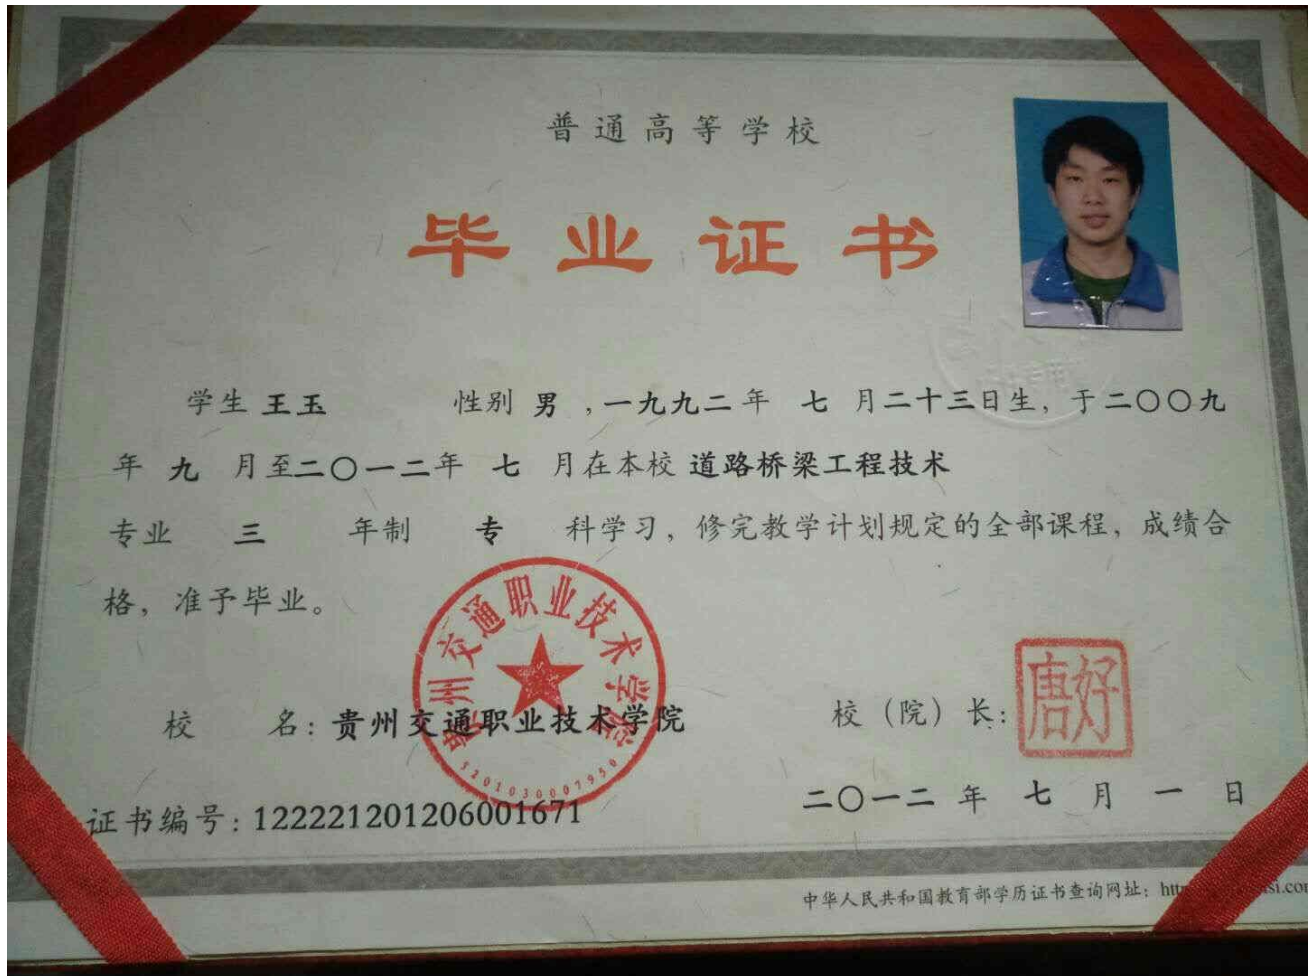 普通高等学校
毕业证书
学生 王玉 性别 男 ,一九九二年 七 月二十三日生，于二〇〇九
年 九 月至二〇一二年 七 月在本校 道路桥梁工程技术
专业 三 年制 专 科学习，修完教学计划规定的全部课程，成绩合
格，准予毕业。
贵州交通职业技术学院
5201030007950
校 名：贵州交通职业技术学院
校（院）长：
唐好
证书编号：122221201206001671
二〇一二 年 七 月 一 日
中华人民共和国教育部学历证书查询网址：